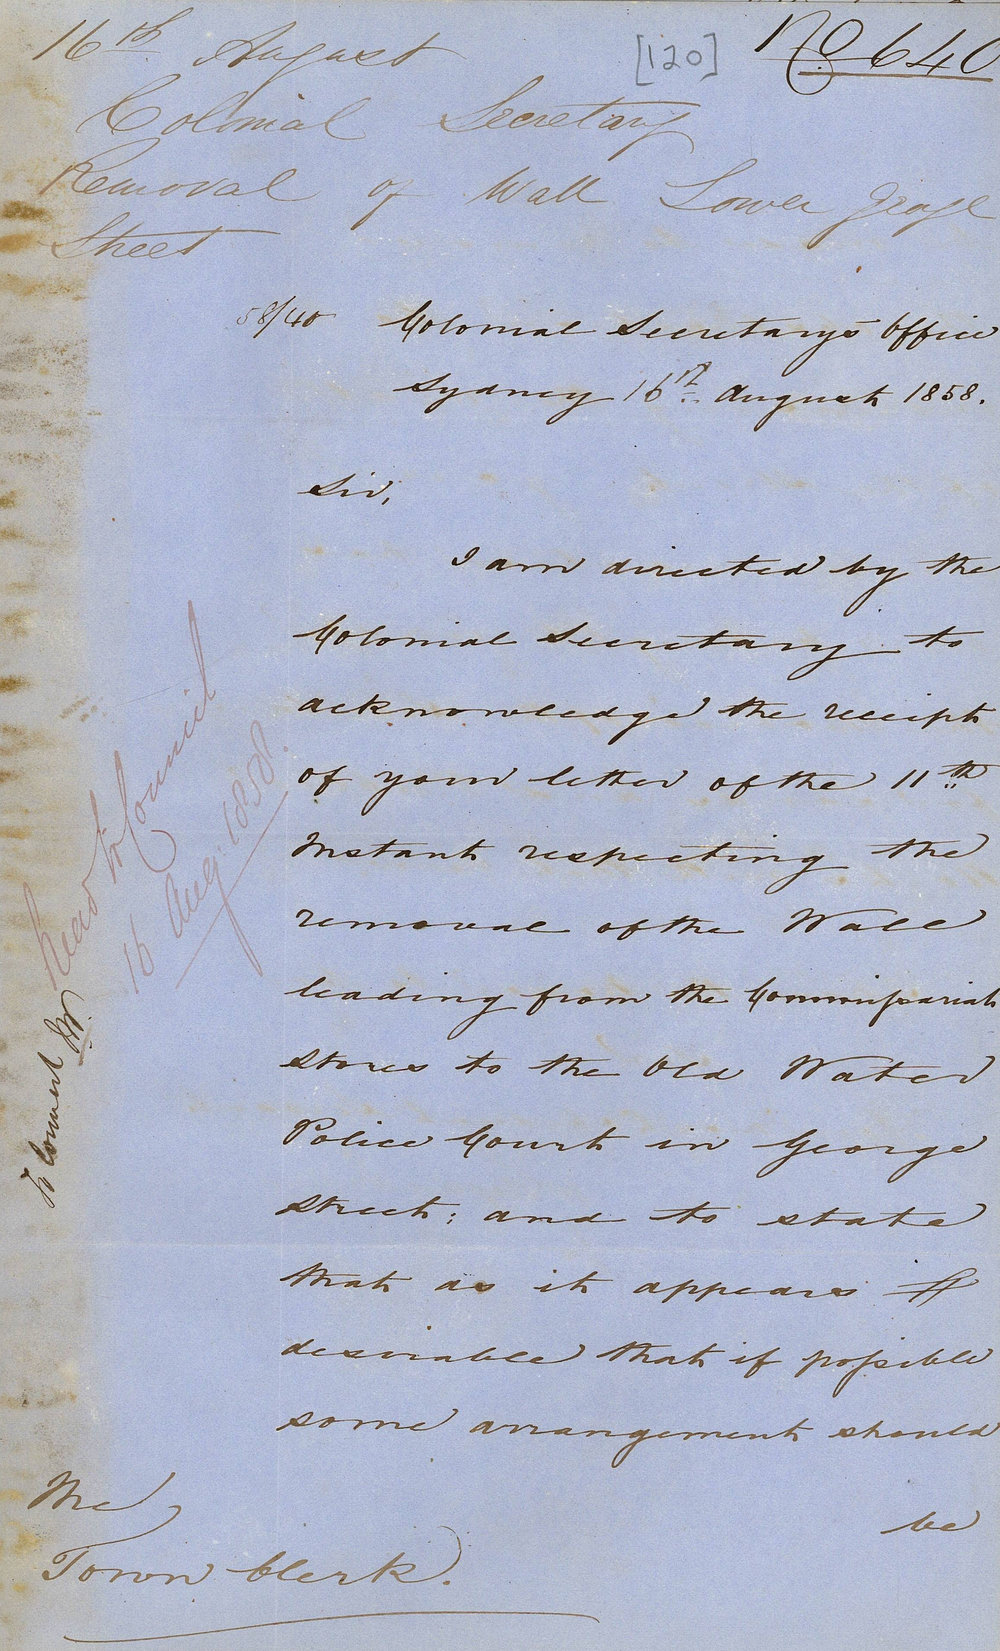 16th August
[120]
No 640
Colonial Secretary
Removal of Wall Lower George
Street
58/40
Colonial Secretary's Office
Sydney 16th August 1858.
Sir,
I am directed by the
Colonial Secretary to
acknowledge the receipt
of your letter of the 11th
Instant respecting the
removal of the Wall
leading from the Commissariat
Stores to the Old Water
Police Court in George
Street; and to state
that as it appears
desirable that if possible
some arrangement should
be
The
Town Clerk.
Read to Council
16 Aug. 1858.
To Council